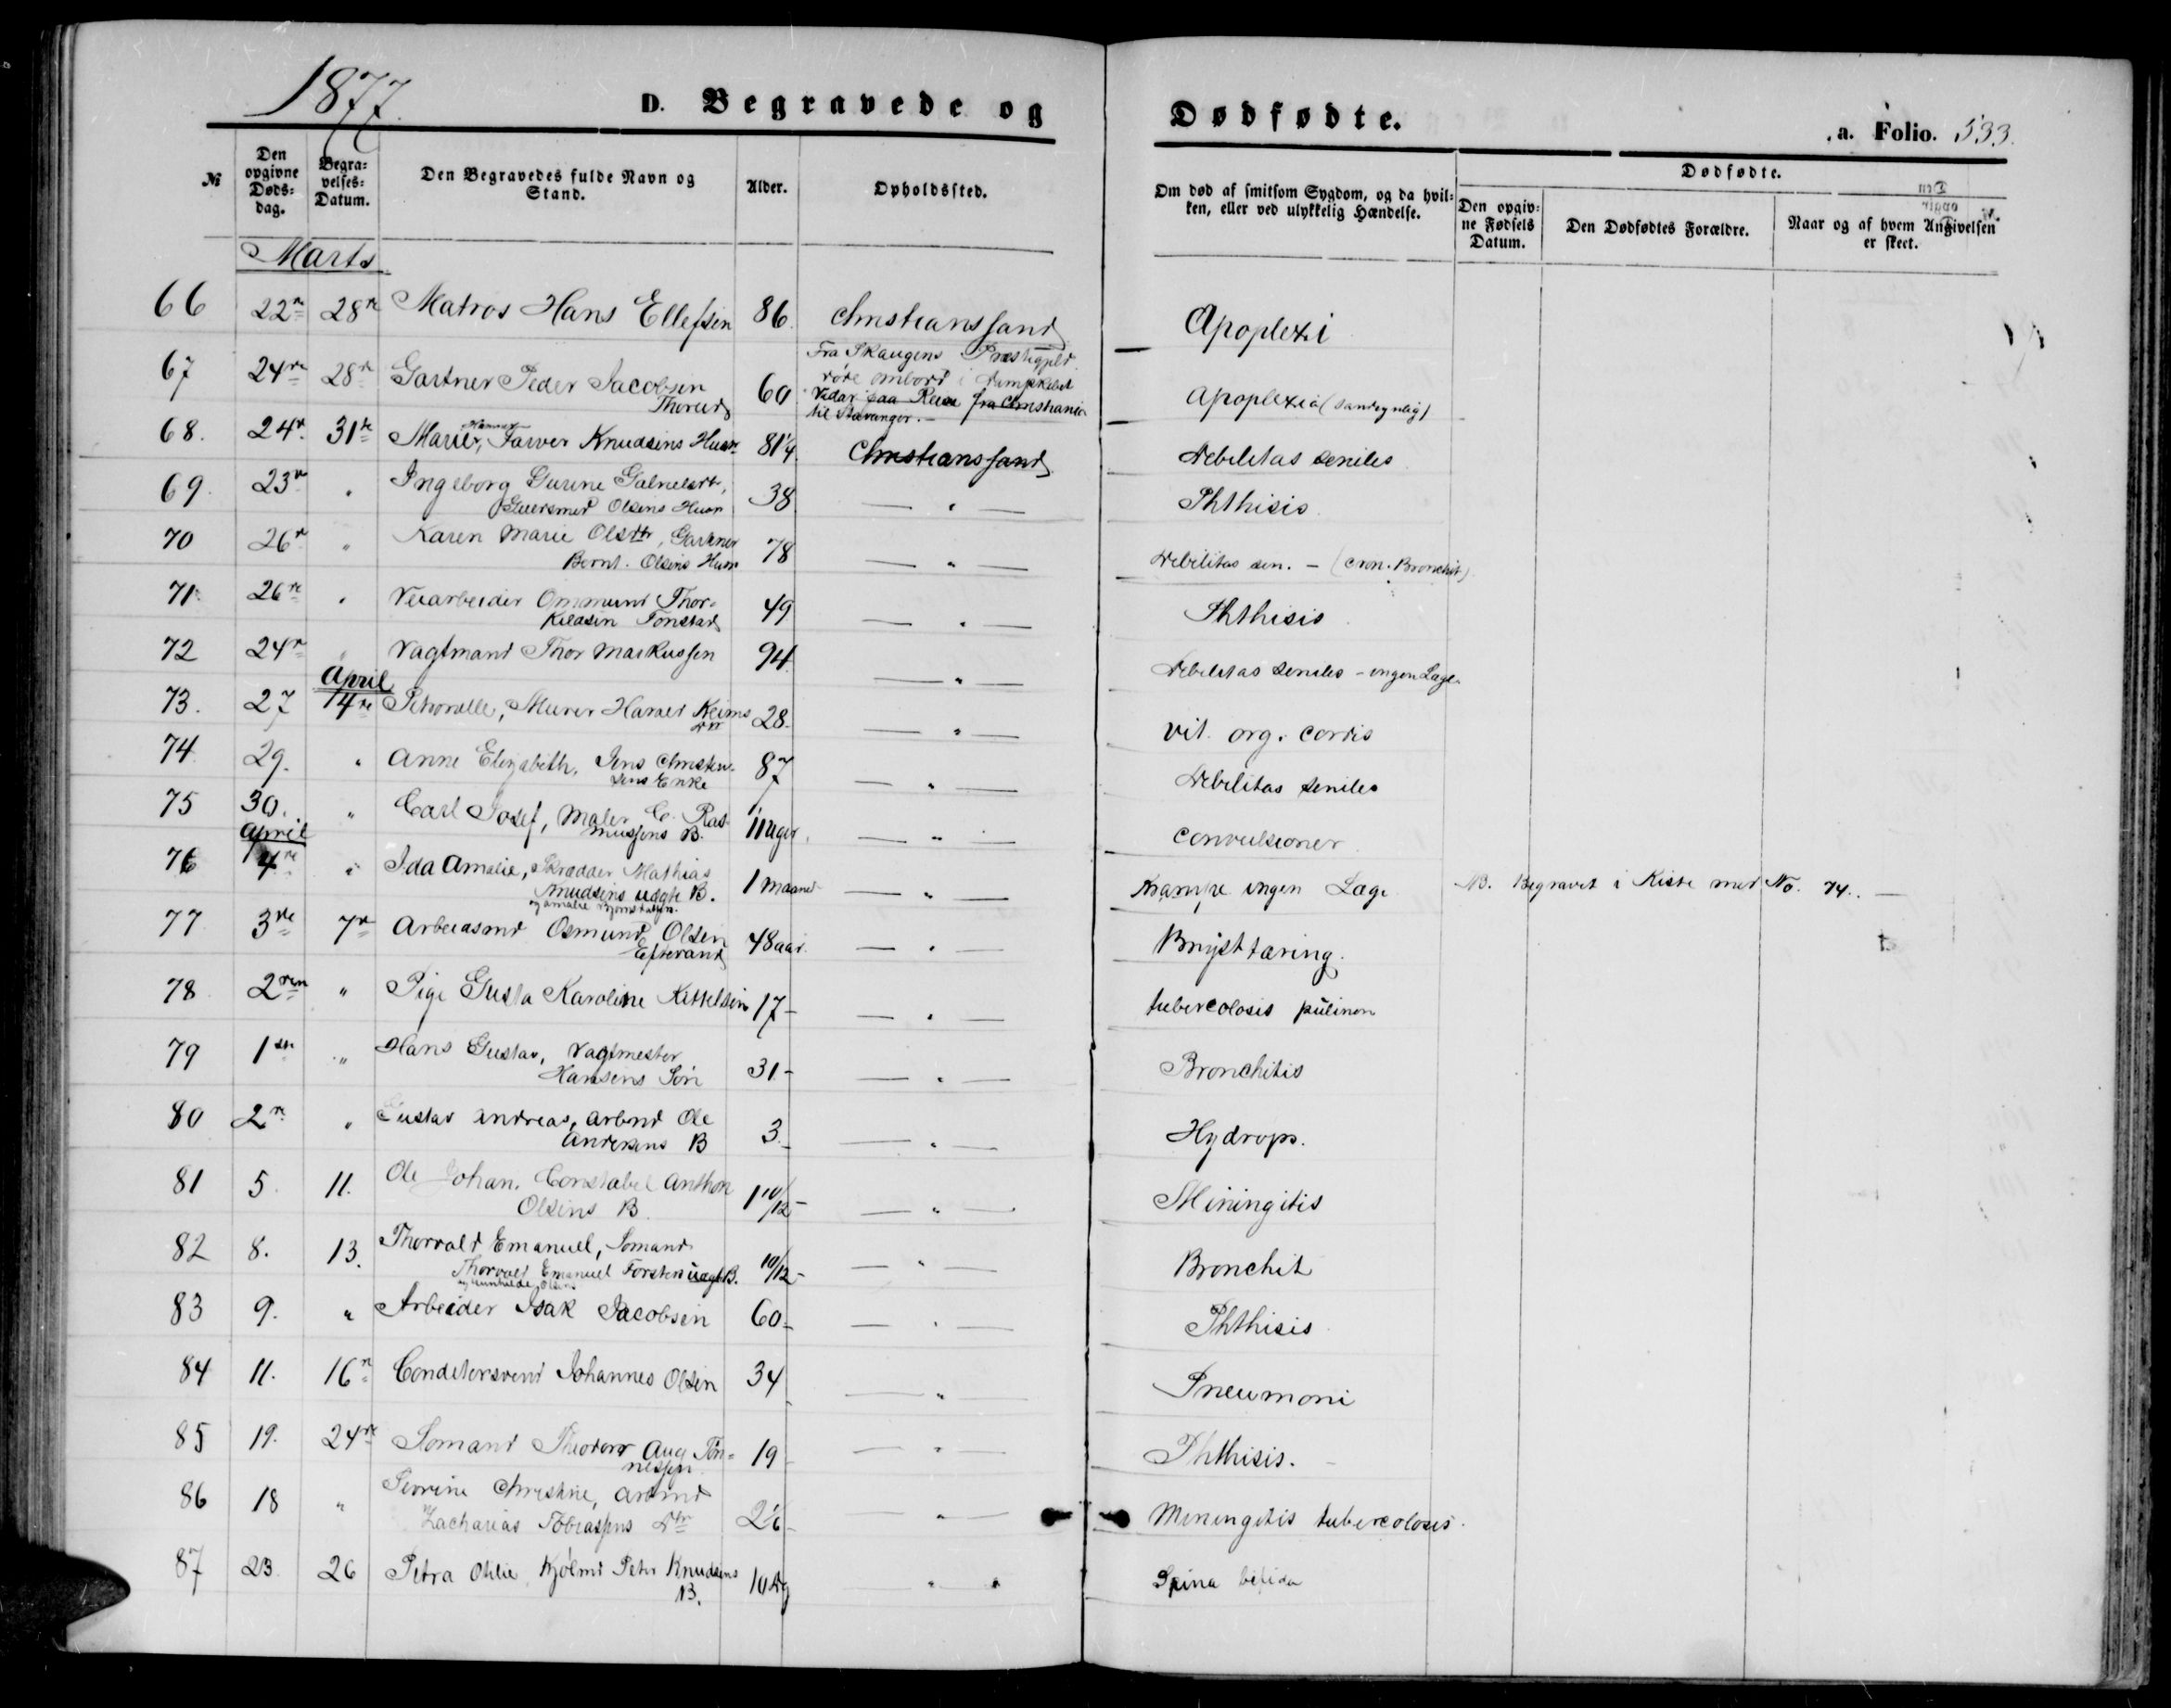 1877.
D. Begravede og Dødfødte.
.a. Folio. 533.
№
Den opgivne Døds-dag.
Begra-velses-Datum.
Den Begravedes fulde Navn og Stand.
Alder.
Opholdssted.
Om død af smitsom Sygdom, og da hvil-ken, eller ved ulykkelig Hændelse.
Dødfødte.
Den opgiv-ne Fødsels Datum.
Den Dødfødtes Forældre.
Naar og af hvem Angivelsen er skeet.
Marts
66 22de 28de Matros Hans Ellefsen 86. Christianssand Apoplexi
67 24de 28de Gartner Peder Jacobsen 60 Fra Skaugens Præstegjeld
Thorud døde ombord i Dampskibet
Vidar paa Reise fra Christiania
til Stavanger. – Apoplexia (sandsynlig)
68. 24de 31te Marie, Farver Knudsens Hustr 81 1/4 Christianssand Debilitas seniles
69. 23de " Ingeborg Gurine Gabrielsdtr,
Olsens Hustr 38 — " — Phthisis
70 26de " Karen Marie Olsdtr, Gartner
Bernt. Olsens Hustr 78 — " — Debilitas sen. – (cron. Bronchit)
71. 26de " Veiarbeider Ommund Thor-
kildsen Tonstad 49 — " — Phthisis
72 24de " Vagtmand Thor Markussen 94. — " — Debilitas seniles – ingen Læge
April
73. 27 4de Petronelle, Murer Harald Keims
Dtr 28. — " — Vit. org. cordis
74 29. " Anne Elizabeth, Jens Christen-
sens Enke 87 — " — Debilitas seniles
75 30. " Carl Josef, Maler C. Ras-
mussens B. 11 Uger. — " — Convulsioner
April
76 4de " Ida Amalie, Skrædder Mathias
Knudsens uægte B.
og Amalie 1 Maaned — " — Krampe ingen Læge NB. Begravet i Kiste med No. 74. —
77 3de 7de Arbeidsmd Osmund Olsen
Eftevand 48 aar. — " — Brysttæring.
78 2den " Pige Gusta Karoline Kittelsen 17 – — " — tubercolosis pulmon
79 1ste " Hans Gustav, Vagtmester
Hansens Søn 31 – — " — Bronchitis
80 2de " Gustav Andreas, Arbmd Ole
Andersens B 3. – — " — Hydrops.
81 5. 11. Ole Johan, Constabel Anthon
Olsens B. 1 10/12 – — " — Miningitis
82 8. 13. Thorvald Emanuel, Sømand
Thorvald Emanuel Forstens uægte B.
og Gunhilde Olsens 10/12 – — " — Bronchit
83 9. " Arbeider Isak Jacobsen 60 – — " — Phthisis
84 11. 16de Conditorsvend Johannes Olsen 34 — " — Pneumoni
85 19. 24de Sømand Theodor Aug Tøn-
nessen 19 – — " — Phthisis.
86 18 " Severine Christine, Arbmd
Zacharias Tobiassens Dtr 2 1/6 – " — Meningitis tubercolosis.
87 23. 26 Petra Otilie, Kjølmd Peter Knudsens
B. 10 Dg " " Spina bifida